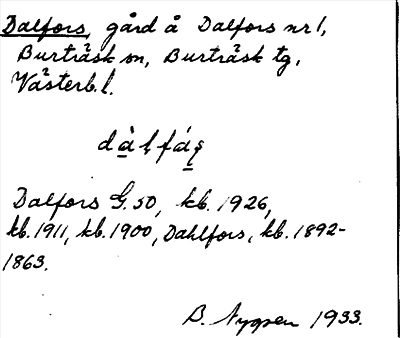 Dalfors, gård å Dalfors nr 1,
Burträsk sn, Burträsk tg,
Västerb. l.
Dalfors G. 50, kb. 1926,
kb. 1911, kb. 1900, Dahlfors, kb. 1892-
1863.
B. Nygren 1933.